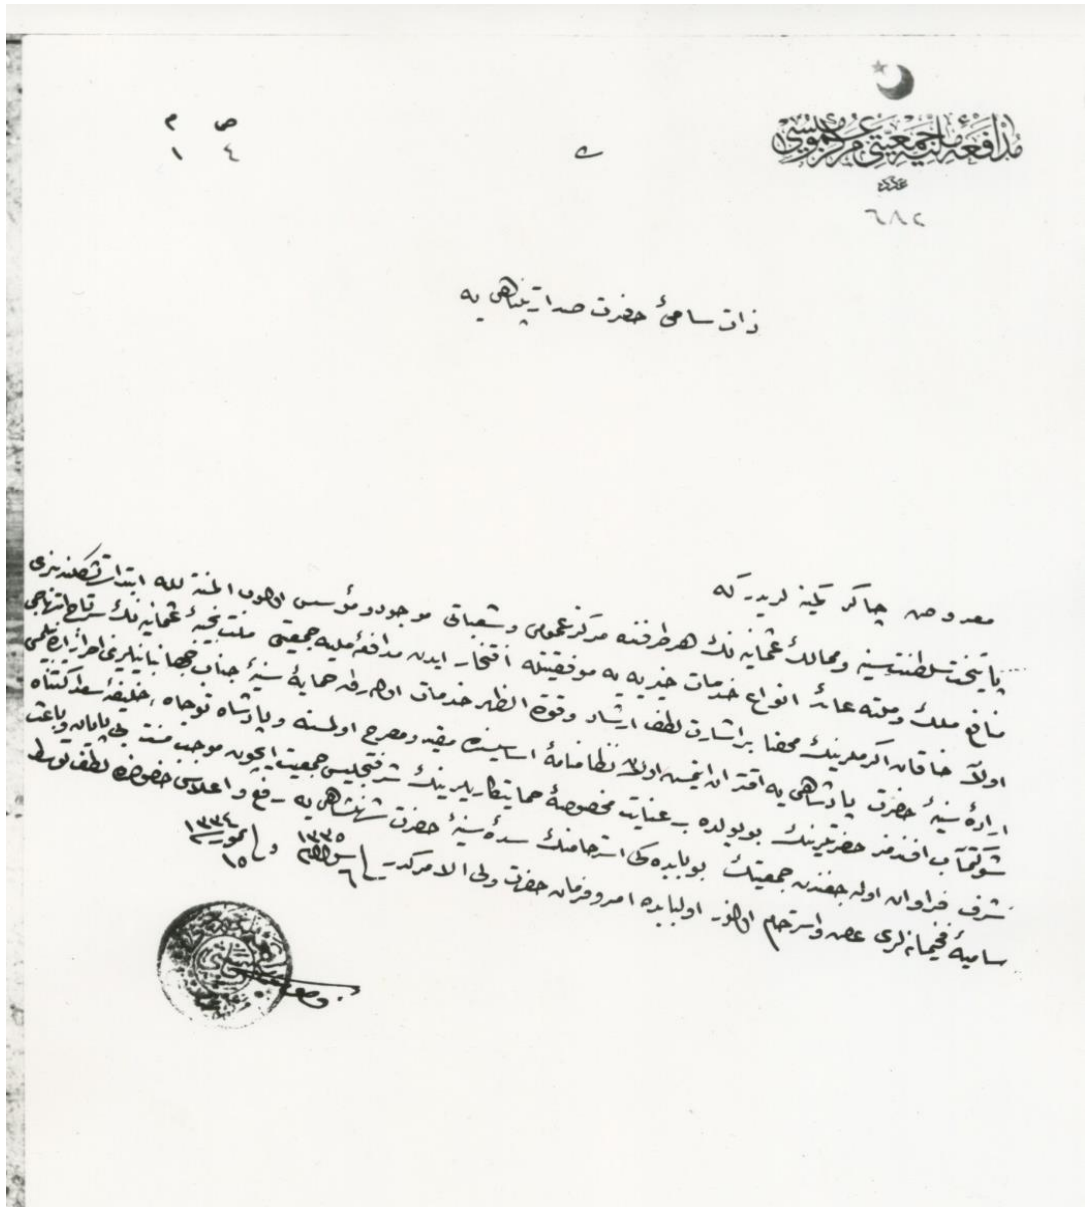 مدافعهٔ ملیه جمعیتی مرکز عمومیسی
عدد
٦٨٢
ص م
٤ ١
ذات سامیٔ حضرت صدارتپناهی یه
معروض چاکر کمینه لریدر که
پایتخت سلطنت سنیه وممالك عثمانیه نك هر طرفنده مرکز عمومی وشعباتی موجود ومؤسس اولان المنة لله ابتدای تشکلندنبری
منافع ملك وملته عائد انواع خدمات خیریه یه موفقیتله افتخار ایدن مدافعهٔ ملیه جمعیتی ملت نجیبهٔ عثمانیه نك سرتاج ابتهاجی
اولان خاقان اکرملرینك محضا بر اشارت لطف ارشاد وقوة الظهر خدمات اوله رق حمایهٔ سنیهٔ جناب جهانبانیلرینی احراز
ارادهٔ سنیهٔ حضرت پادشاهی یه اقتران ایتمش اولان نظامنامهٔ اساسیسنده مقید ومصرح اولمسنه وپادشاه توجاه، خلیفهٔ
شوکتمآب افندمز حضرتلرینك بویولده بر عنایت مخصوصهٔ حمایتکاریلرینك شرفتجلیسی جمعیت ایچون موجب منت بی پایان وباعث
شرف فراوان اوله جغندن جمعیتك بوبابده کی استرحامنك سدهٔ سنیهٔ حضرت شهنشاهی یه رفع واعلاسی خصوصنده لطف توسط
سامیهٔ فخیمانه لری عرض واسترحام اولنور اولبابده امر وفرمان حضرت ولی الامرکدر
٦ ١٣٣٥
١٥ تموز ١٣٣٤